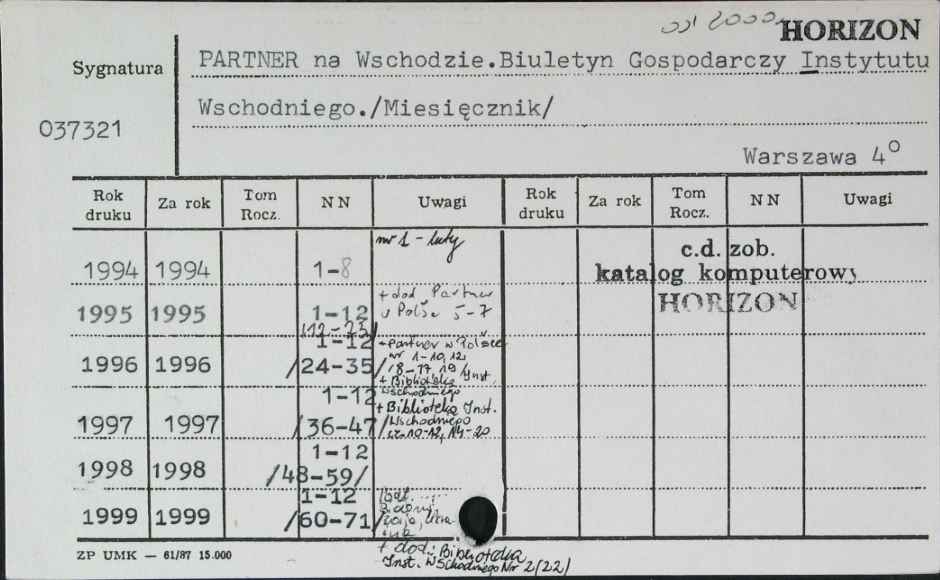 od 2000 HORIZON
Sygnatura
PARTNER na Wschodzie.Biuletyn Gospodarczy Instytutu
Wschodniego./Miesięcznik/
037321
Warszawa 4°
Rok druku Za rok Tom Rocz. NN Uwagi Rok druku Za rok Tom Rocz. NN Uwagi
nr 1 - luty
1994 1994 1-8
c.d. zob.
katalog komputerowy
HORIZON
+ dod. Partner
w Polsce 5-7
1995 1995 1-12
/12-23/
1-12 + Partner w Polsce
nr 1-10,12
1996 1996 /24-35/
+ Biblioteka Inst.
Wschodniego
1-12 + Biblioteka Inst.
Wschodniego
1997 1997 /36-47/
10-12, 14-20
1-12
1998 1998 /48-59/
1-12
1999 1999 /60-71/
+ dod.: Biblioteka
Inst. Wschodniego Nr 2/22/
ZP UMK — 61/87 15.000